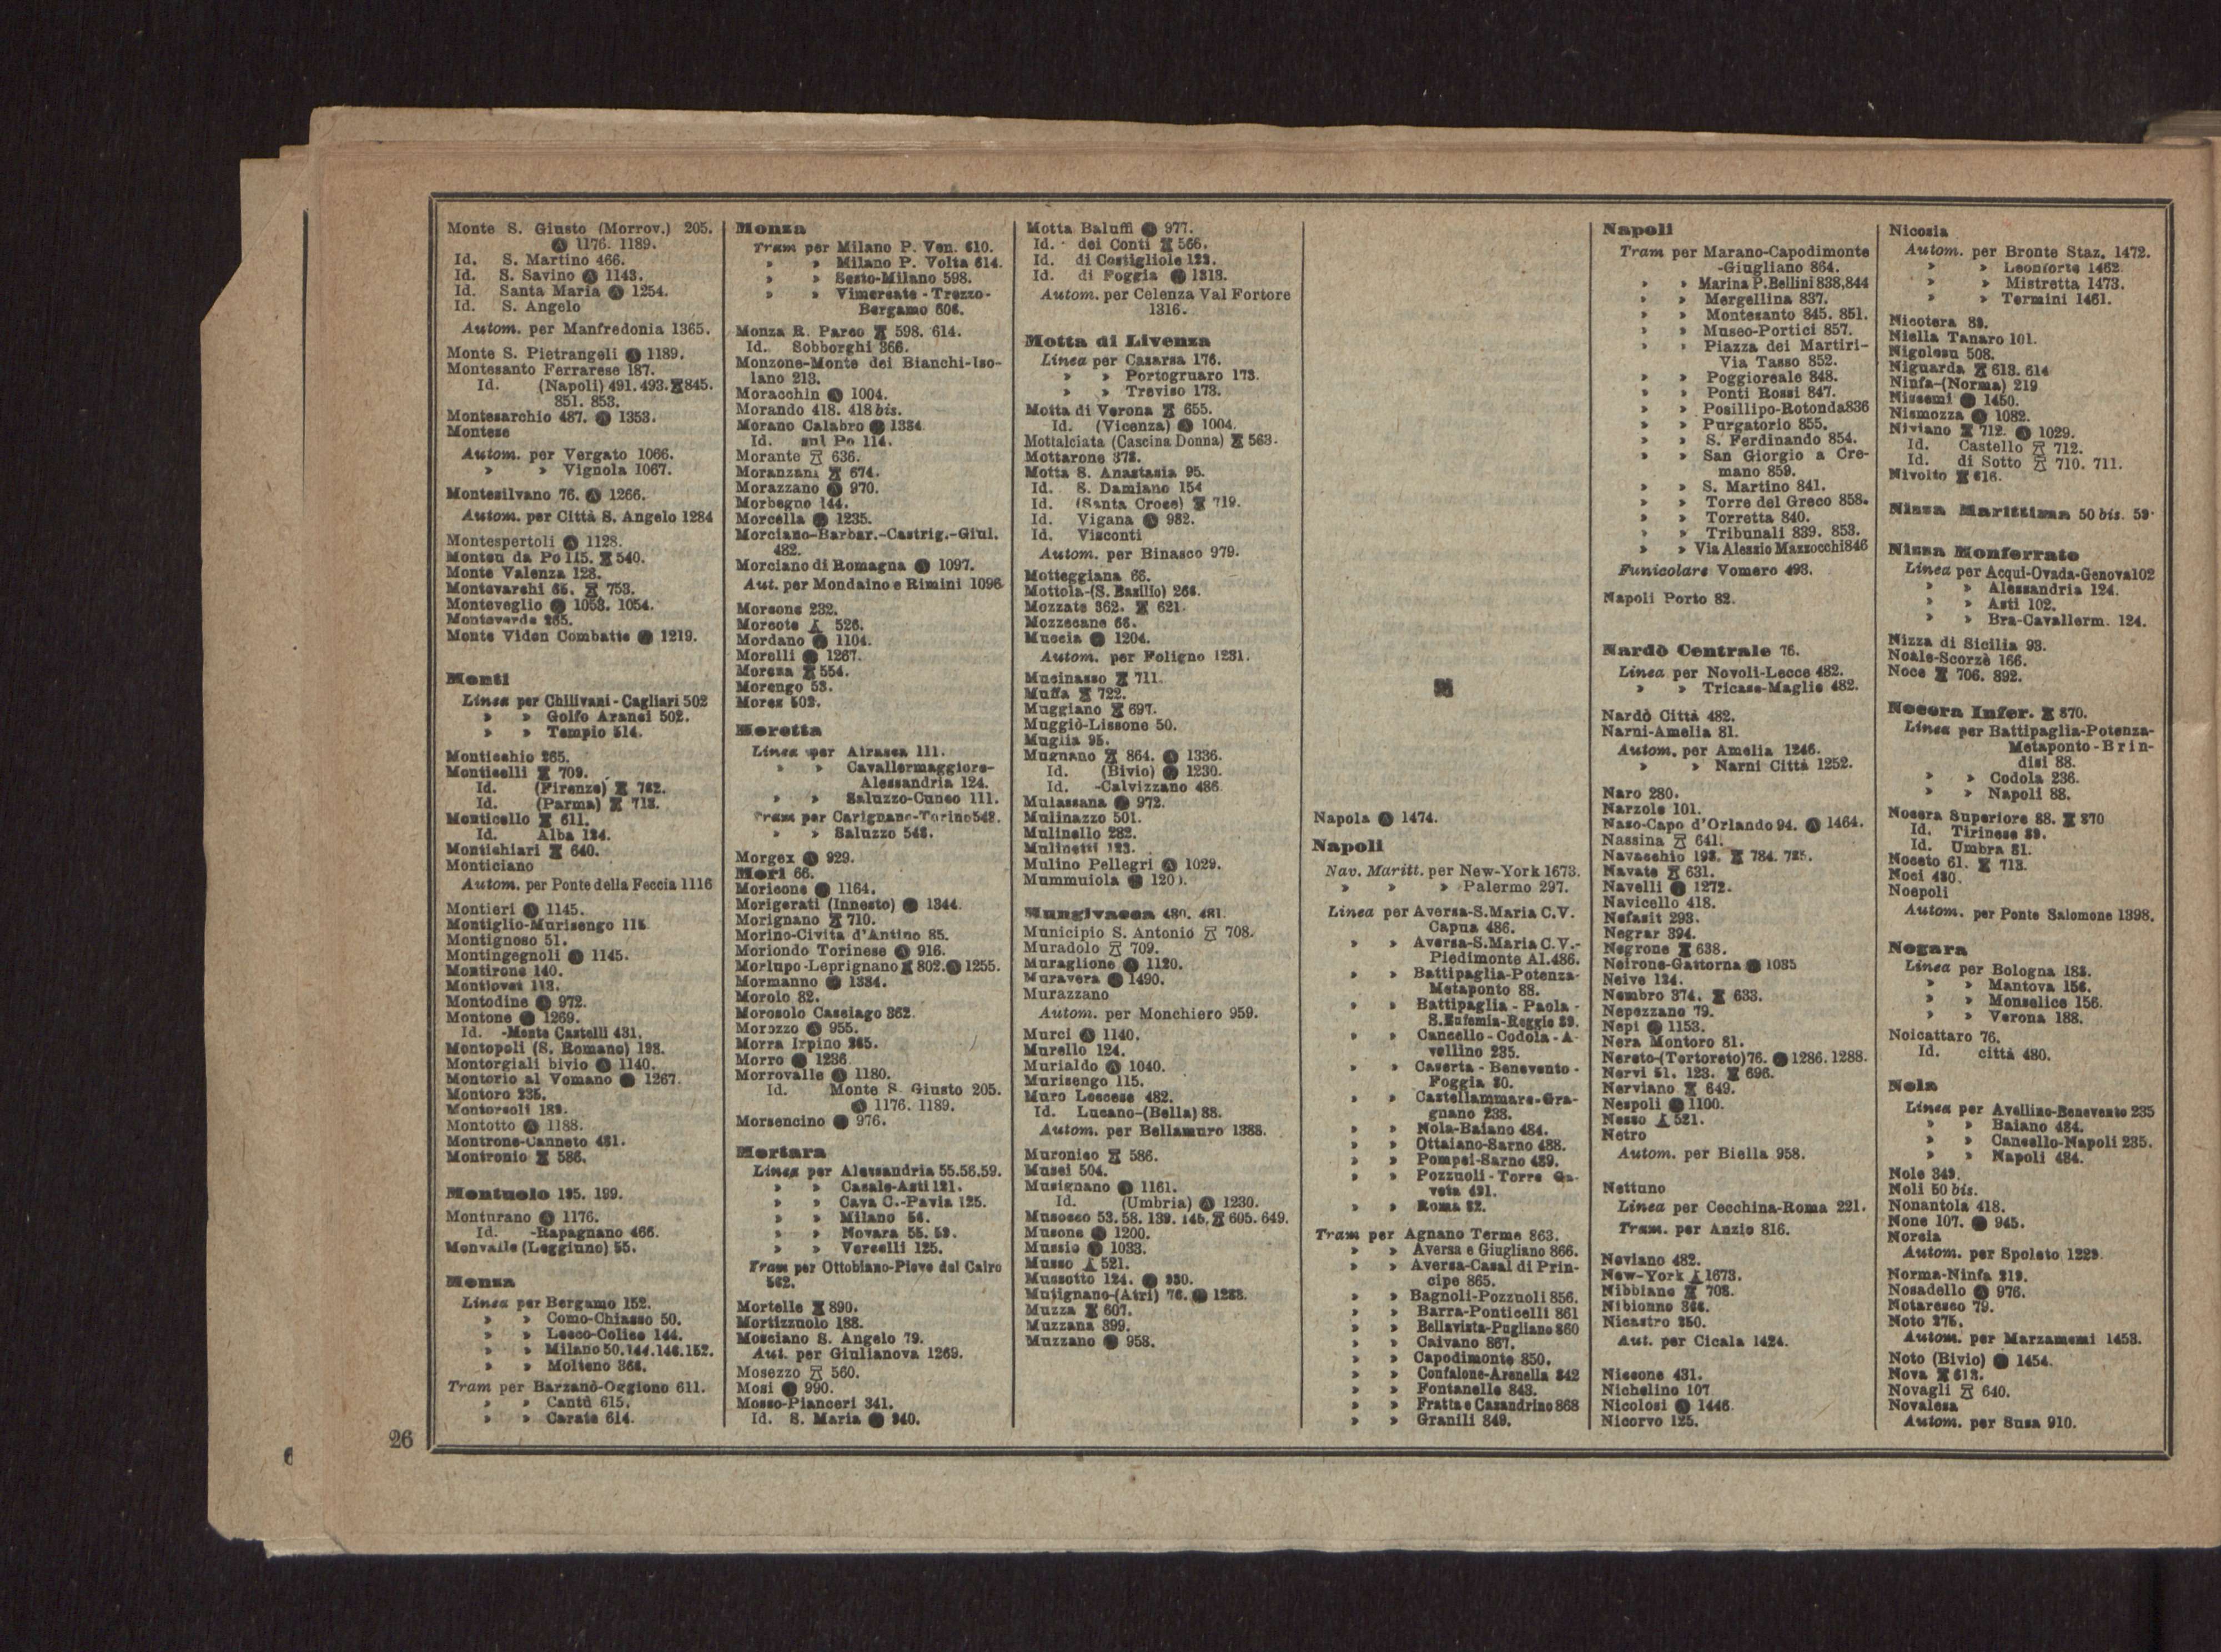 Monte S. Giusto (Morrov.) 205.
Ⓐ 1176. 1189.
Id. S. Martino 466.
Id. S. Savino Ⓐ 1143.
Id. Santa Maria Ⓐ 1254.
Id. S. Angelo
Autom. per Manfredonia 1365.
Monte S. Pietrangeli Ⓐ 1189.
Montesanto Ferrarese 187.
Id. (Napoli) 491. 493. 845.
851. 853.
Montesarchio 487. Ⓐ 1353.
Montese
Autom. per Vergato 1066.
» » Vignola 1067.
Montesilvano 76. Ⓐ 1266.
Autom. per Città S. Angelo 1284
Montespertoli Ⓐ 1128.
Monteu da Po 115. 540.
Monte Valenza 128.
Montevarchi 65. 753.
Monteveglio Ⓐ 1053. 1054.
Monteverde 265.
Monte Vidon Combatte Ⓐ 1219.
Monti
Linea per Chilivani-Cagliari 502
» » Golfo Aranci 502.
» » Tempio 514.
Monticchio 265.
Monticelli 709.
Id. (Firenze) 762.
Id. (Parma) 713.
Monticello 611.
Id. Alba 124.
Montichiari 640.
Monticiano
Autom. per Ponte della Feccia 1116
Montieri Ⓐ 1145.
Montiglio-Murisengo 115
Montignoso 51.
Montingegnoli Ⓐ 1145.
Montirone 140.
Montjovet 113.
Montodine Ⓐ 972.
Montone Ⓐ 1269.
Id. -Monte Castelli 431.
Montopoli (S. Romano) 198.
Montorgiali bivio Ⓐ 1140.
Montorio al Vomano Ⓐ 1267.
Montoro 235.
Montorsoli 189.
Montotto Ⓐ 1188.
Montrone-Canneto 481.
Montronio 586.
Montuolo 195. 199.
Monturano Ⓐ 1176.
Id. -Rapagnano 466.
Monvalle (Leggiuno) 55.
Monza
Linea per Bergamo 152.
» » Como-Chiasso 50.
» » Lecco-Colico 144.
» » Milano 50. 144. 146. 152.
» » Molteno 366.
Tram per Barzanò-Oggiono 611.
» » Cantù 615.
» » Carate 614.
26
Monza
Tram per Milano P. Ven. 610.
» » Milano P. Volta 614.
» » Sesto-Milano 598.
» » Vimercate-Trezzo-
Bergamo 608.
Monza R. Parco 598. 614.
Id. Sobborghi 366.
Monzone-Monte dei Bianchi-Iso-
lano 213.
Moracchin Ⓐ 1004.
Morando 418. 418 bis.
Morano Calabro Ⓐ 1334
Id. sul Po 114.
Morante 636.
Moranzani 674.
Morazzano Ⓐ 970.
Morbegno 144.
Morcella Ⓐ 1235.
Morciano-Barbar.-Castrig.-Giul.
482.
Morciano di Romagna Ⓐ 1097.
Aut. per Mondaino e Rimini 1096
Morcone 232.
Morcote 526.
Mordano Ⓐ 1104.
Morelli Ⓐ 1267.
Morena 554.
Morengo 53.
Mores 502.
Moretta
Linea per Airasca 111.
» » Cavallermaggiore-
Alessandria 124.
» » Saluzzo-Cuneo 111.
Tram per Carignano-Torino 548.
» » Saluzzo 548.
Morgex Ⓐ 929.
Mori 66.
Moricone Ⓐ 1164.
Morigerati (Innesto) Ⓐ 1344.
Morignano 710.
Morino-Civita d'Antino 85.
Moriondo Torinese Ⓐ 916.
Morlupo-Leprignano 802. Ⓐ 1255.
Mormanno Ⓐ 1334.
Morolo 82.
Morosolo Casciago 362.
Morozzo Ⓐ 955.
Morra Irpino 265.
Morro Ⓐ 1236
Morrovalle Ⓐ 1180.
Id. Monte S. Giusto 205.
Ⓐ 1176. 1189.
Morsencino Ⓐ 976.
Mortara
Linea per Alessandria 55.56.59.
» » Casale-Asti 121.
» » Cava C.-Pavia 125.
» » Milano 56.
» » Novara 55. 59.
» » Vercelli 125.
Tram per Ottobiano-Pieve del Cairo
562.
Mortelle 890.
Mortizzuolo 188.
Mosciano S. Angelo 79.
Aut. per Giulianova 1269.
Mosezzo 560.
Mosi Ⓐ 990.
Mosso-Pianceri 341.
Id. S. Maria Ⓐ 940.
Motta Baluffi Ⓐ 977.
Id. dei Conti 566.
Id. di Costigliole 123.
Id. di Foggia Ⓐ 1318.
Autom. per Celenza Val Fortore
1316.
Motta di Livenza
Linea per Casarsa 176.
» » Portogruaro 173.
» » Treviso 173.
Motta di Verona 655.
Id. (Vicenza) Ⓐ 1004.
Mottalciata (Cascina Donna) 563.
Mottarone 378.
Motta S. Anastasia 95.
Id. S. Damiano 154
Id. (Santa Croce) 719.
Id. Vigana Ⓐ 982.
Id. Visconti
Autom. per Binasco 979.
Motteggiana 66.
Mottola-(S. Basilio) 266.
Mozzate 362. 621.
Mozzecane 66.
Muccia Ⓐ 1204.
Autom. per Foligno 1231.
Mucinasso 711.
Muffa 722.
Muggiano 697.
Muggiò-Lissone 50.
Muglia 95.
Mugnano 864. Ⓐ 1336.
Id. (Bivio) Ⓐ 1230.
Id. -Calvizzano 486.
Mulassana Ⓐ 972.
Mulinazzo 501.
Mulinello 282.
Mulinetti 123.
Mulino Pellegri Ⓐ 1029.
Mummuiola Ⓐ
Mungivacca 480. 481.
Municipio S. Antonio 708.
Muradolo 709.
Muraglione Ⓐ 1120.
Muravera Ⓐ 1490.
Murazzano
Autom. per Monchiero 959.
Murci Ⓐ 1140.
Murello 124.
Murialdo Ⓐ 1040.
Murisengo 115.
Muro Leccese 482.
Id. Lucano-(Bella) 88.
Autom. per Bellamuro 1388.
Muronico 586.
Musei 504.
Musignano Ⓐ 1161.
Id. (Umbria) Ⓐ 1230.
Musocco 53. 58. 139. 145. 605. 649.
Musone Ⓐ 1200.
Mussio Ⓐ 1033.
Musso 521.
Mussotto 124. Ⓐ 930.
Mutignano-(Atri) 76. Ⓐ 1288.
Muzza 607.
Muzzana 399.
Muzzano Ⓐ 958.
N
Napola Ⓐ 1474.
Napoli
Nav. Maritt. per New-York 1673.
» » » Palermo 297.
Linea per Aversa-S.Maria C.V.
Capua 486.
» » Aversa-S.Maria C.V.-
Piedimonte Al.486.
» » Battipaglia-Potenza-
Metaponto 88.
» » Battipaglia-Paola-
S.Eufemia-Reggio 89.
» » Cancello-Codola-A-
vellino 235.
» » Caserta-Benevento-
Foggia 80.
» » Castellammare-Gra-
gnano 238.
» » Nola-Baiano 484.
» » Ottaiano-Sarno 488.
» » Pompei-Sarno 489.
» » Pozzuoli-Torre Ga-
veta 491.
» » Roma 82.
Tram per Agnano Terme 863.
» » Aversa e Giugliano 866.
» » Aversa-Casal di Prin-
cipe 865.
» » Bagnoli-Pozzuoli 856.
» » Barra-Ponticelli 861
» » Bellavista-Pugliano 860
» » Caivano 867.
» » Capodimonte 850.
» » Confalone-Arenella 842
» » Fontanelle 843.
» » Fratta e Casandrino 868
» » Granili 849.
Napoli
Tram per Marano-Capodimonte
-Giugliano 864.
» » Marina P.Bellini 838,844
» » Mergellina 837.
» » Montesanto 845. 851.
» » Museo-Portici 857.
» » Piazza dei Martiri-
Via Tasso 852.
» » Poggioreale 848.
» » Ponti Rossi 847.
» » Posillipo-Rotonda836
» » Purgatorio 855.
» » S. Ferdinando 854.
» » San Giorgio a Cre-
mano 859.
» » S. Martino 841.
» » Torre del Greco 858.
» » Torretta 840.
» » Tribunali 839. 853.
» » Via Alessio Mazzocchi846
Funicolare Vomero 493.
Napoli Porto 82.
Nardò Centrale 76.
Linea per Novoli-Lecce 482.
» » Tricase-Maglie 482.
Nardò Città 482.
Narni-Amelia 81.
Autom. per Amelia 1246.
» » Narni Città 1252.
Naro 280.
Narzole 101.
Naso-Capo d'Orlando 94. Ⓐ 1464.
Nassina 641.
Navacchio 198. 784. 785.
Navate 631.
Navelli Ⓐ 1272.
Navicello 418.
Nefasit 293.
Negrar 394.
Negrone 638.
Neirone-Gattorna Ⓐ 1035
Neive 124.
Nembro 374. 633.
Nepezzano 79.
Nepi Ⓐ 1153.
Nera Montoro 81.
Nereto-(Tortoreto)76. Ⓐ 1286. 1288.
Nervi 51. 123. 696.
Nerviano 649.
Nespoli Ⓐ 1100.
Nesso 521.
Netro
Autom. per Biella 958.
Nettuno
Linea per Cecchina-Roma 221.
Tram. per Anzio 816.
Neviano 482.
New-York 1673.
Nibbiano 708.
Nibionno 366.
Nicastro 250.
Aut. per Cicala 1424.
Niccone 431.
Nichelino 107
Nicolosi Ⓐ 1446
Nicorvo 125.
Nicosia
Autom. per Bronte Staz. 1472.
» » Leonforte 1462
» » Mistretta 1473.
» » Termini 1461.
Nicotera 89.
Niella Tanaro 101.
Nigolosu 508.
Niguarda 613. 614
Ninfa-(Norma) 219
Niscemi Ⓐ 1450.
Nismozza Ⓐ 1082.
Niviano 712. Ⓐ 1029.
Id. Castello 712.
Id. di Sotto 710. 711.
Nivolto 616.
Nizza Marittima 50 bis. 59.
Nizza Monferrato
Linea per Acqui-Ovada-Genova102
» » Alessandria 124.
» » Asti 102.
» » Bra-Cavallerm. 124.
Nizza di Sicilia 93.
Noale-Scorzè 166.
Noce 706. 892.
Nocera Infer. 870.
Linea per Battipaglia-Potenza-
Metaponto-Brin-
disi 88.
» » Codola 236.
» » Napoli 88.
Nocera Superiore 88. 870
Id. Tirinese 89.
Id. Umbra 81.
Noceto 61. 713.
Noci 480.
Noepoli
Autom. per Ponte Salomone 1398.
Nogara
Linea per Bologna 188.
» » Mantova 156.
» » Monselice 156.
» » Verona 188.
Noicattaro 76.
Id. città 480.
Nola
Linea per Avellino-Benevento 235
» » Baiano 484.
» » Cancello-Napoli 235.
» » Napoli 484.
Nole 349.
Noli 50 bis.
Nonantola 418.
None 107. Ⓐ 945.
Norcia
Autom. per Spoleto 1229.
Norma-Ninfa 219.
Nosadello Ⓐ 976.
Notaresco 79.
Noto 275.
Autom. per Marzamemi 1453.
Noto (Bivio) Ⓐ 1454.
Nova 613.
Novagli 640.
Novalesa
Autom. per Susa 910.